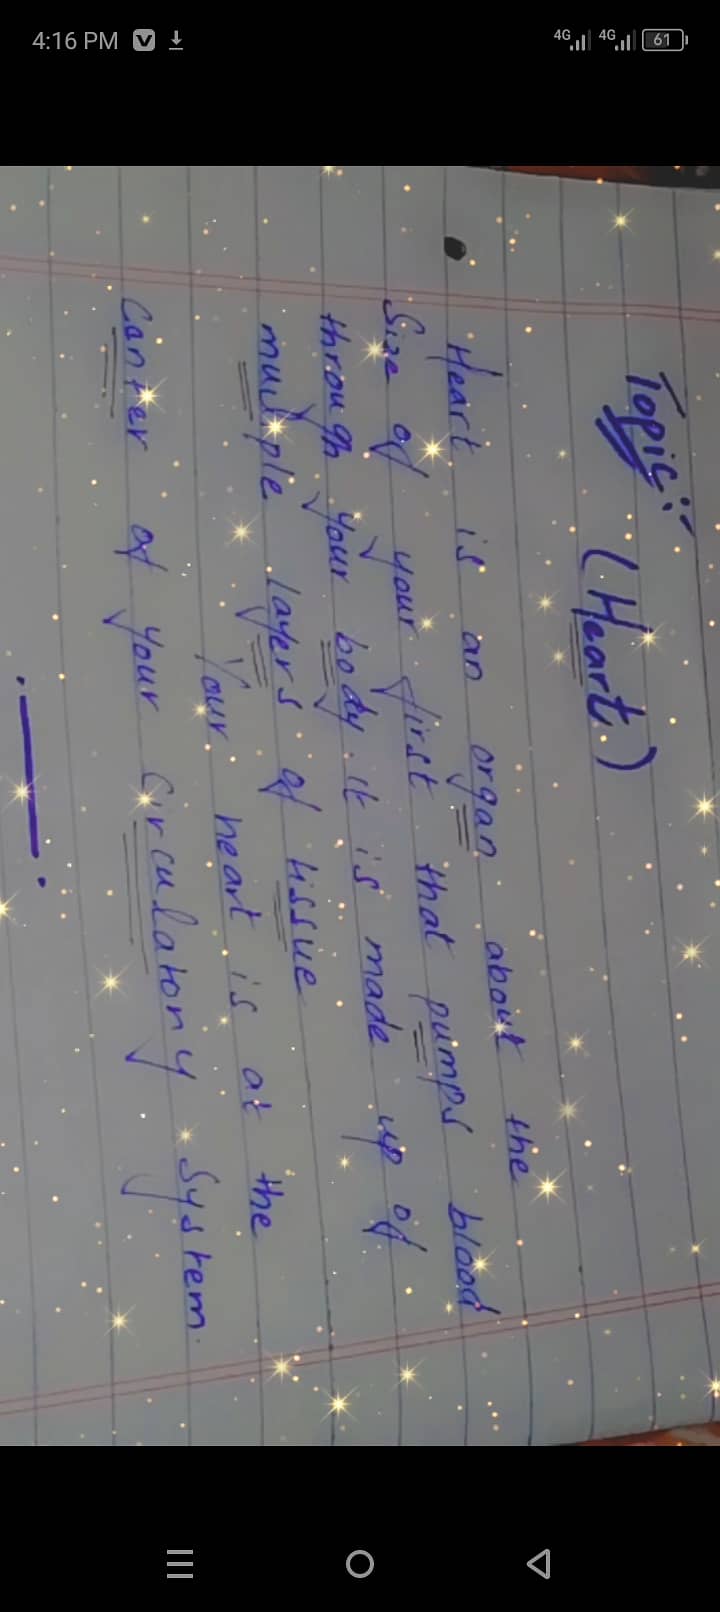 4:16 PM 4G 4G 61
Topic:- (Heart)
Heart is an organ about the
Size of your first that pumps blood
through your body. it is made up of
multiple layers of tissue
Your heart is at the
Canter of your Circulatory System.